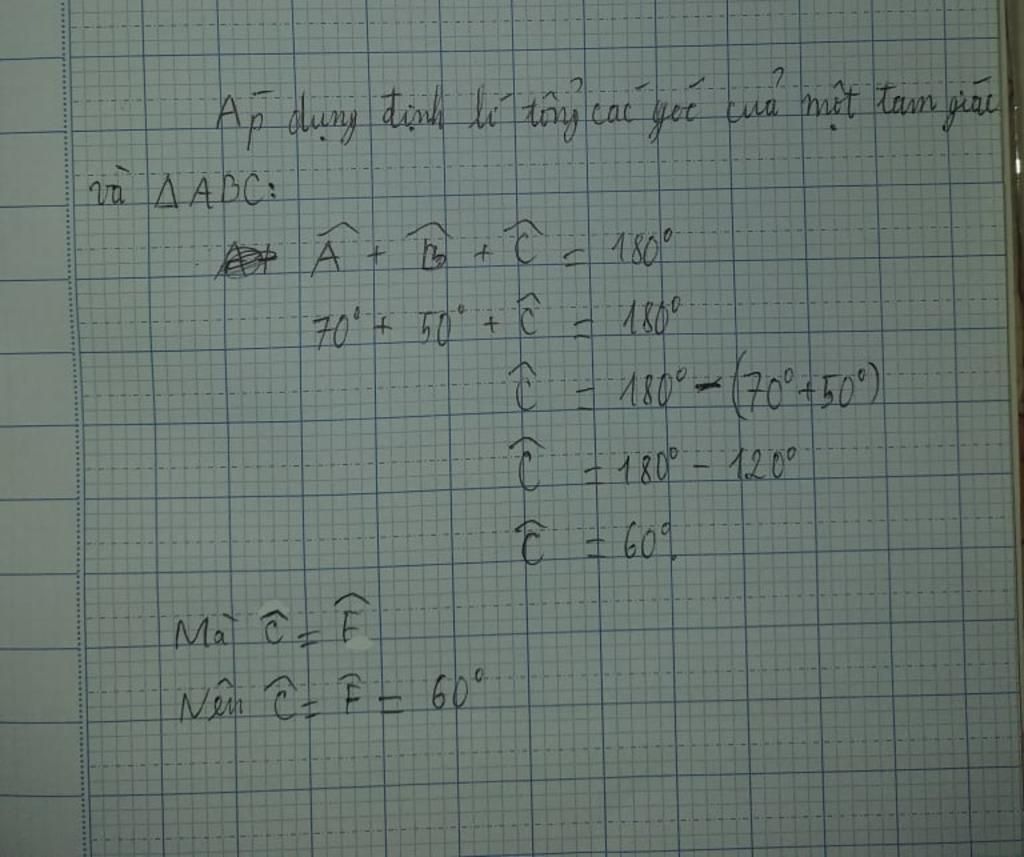 Áp dụng định lí tổng các góc của một tam giác
và ΔABC:
Â + B̂ + Ĉ = 180°
70° + 50° + Ĉ = 180°
Ĉ = 180° - (70° + 50°)
Ĉ = 180° - 120°
Ĉ = 60°
Mà Ĉ = F̂
Nên Ĉ = F̂ = 60°